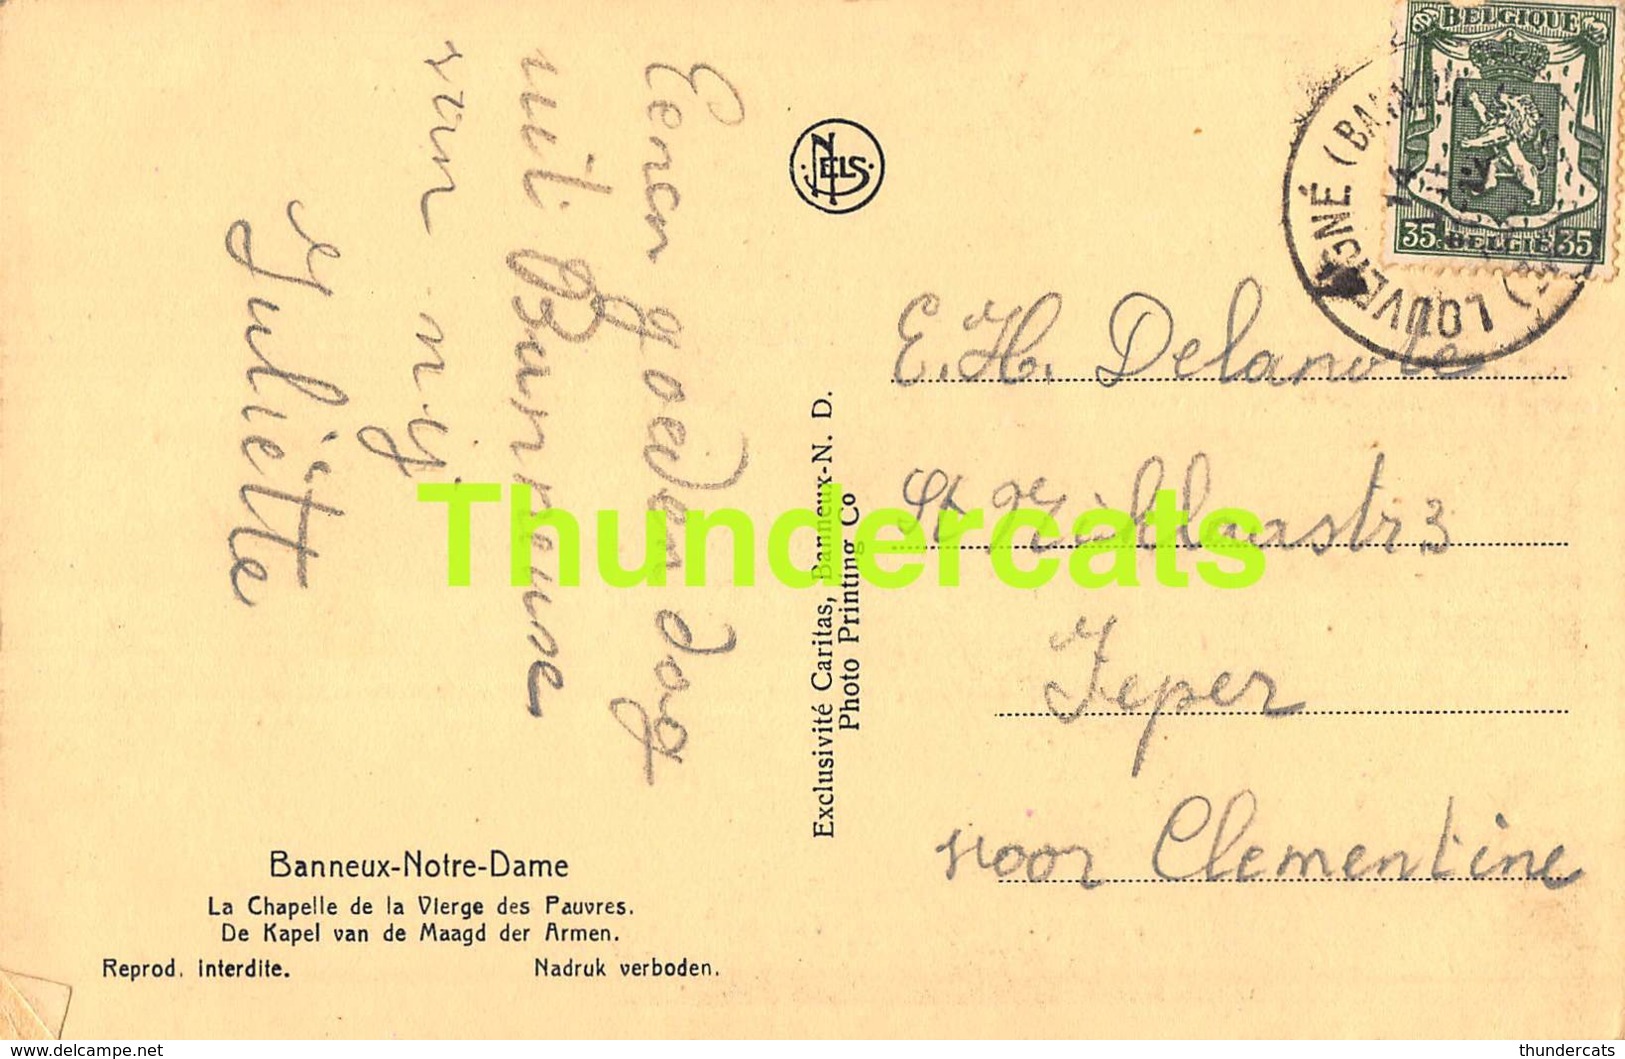 Eenen goeden dag
uit Banneuse
van mij
Juliette
Banneux-Notre-Dame
La Chapelle de la Vierge des Pauvres.
De Kapel van de Maagd der Armen.
Reprod. interdite. Nadruk verboden.
NELS
Exclusivité Caritas, Banneux-N. D.
Photo Printing Co
BELGIQUE
35 BELGIË 35
LOUVEIGNÉ
E.H. Delanote
St Niklaastr 3
Ieper
voor Clementine
Thundercats
thundercats
www.delcampe.net